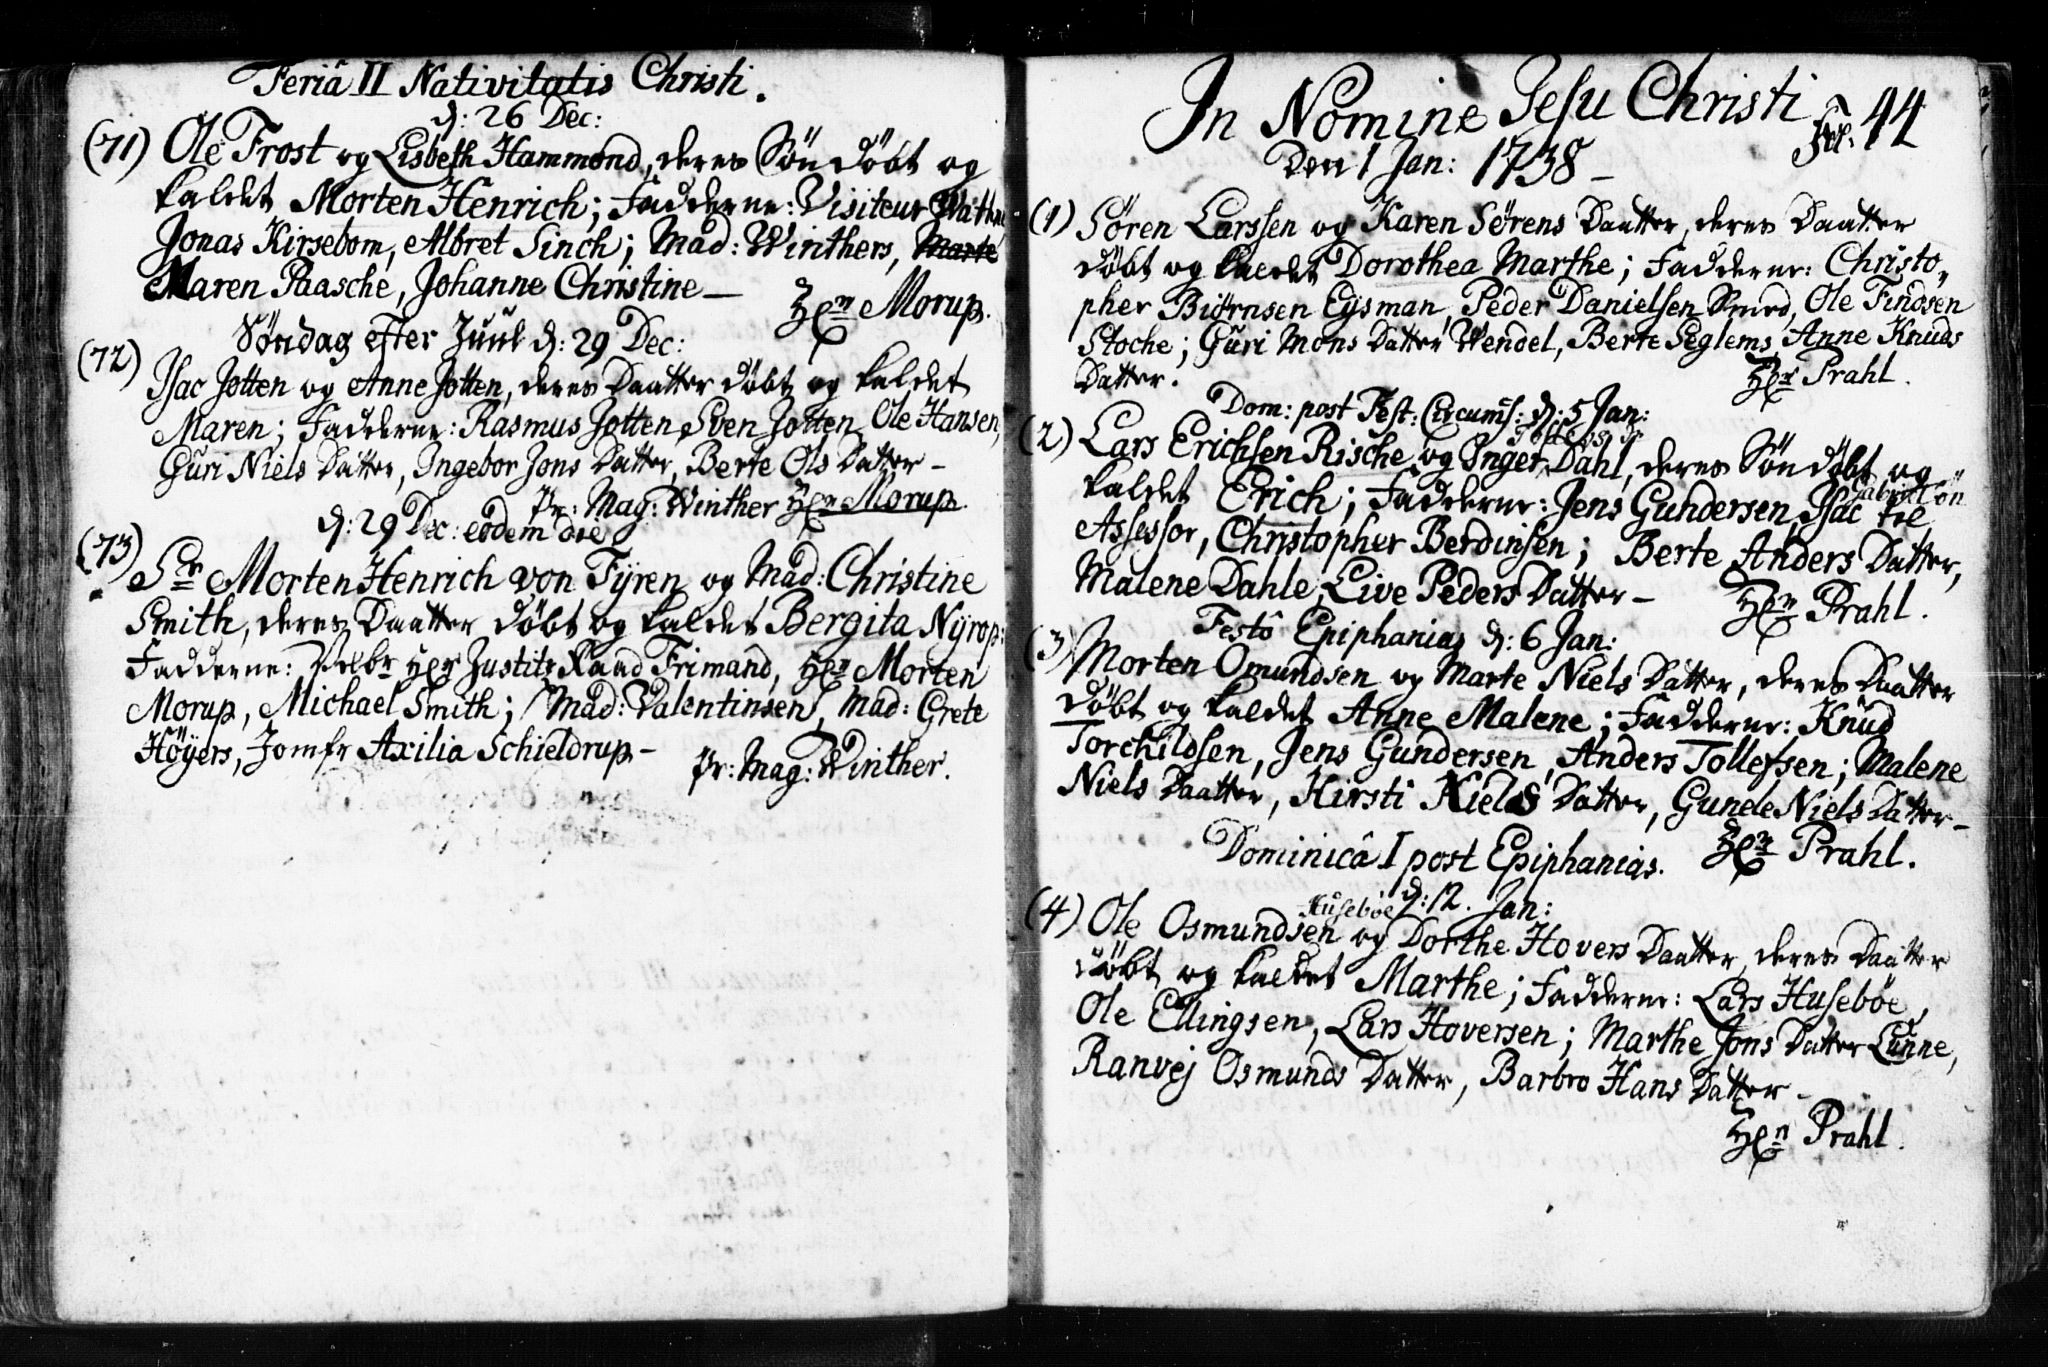 Feriâ II Nativitatis Christi.
d: 26 Dec:
(71) Ole Frost og Lisbeth Hammond, deres Sön döbt og
kaldet Morten Henrich; Fadderne: Visiteur
Jonas Kirsebom, Albret Sinch; Mad: Winthers, Marte
Maren Paasche, Johanne Christine —
Hr Morup.
Söndag efter Juul d: 29 Dec:
(72) Isac Jotten og Anne Jotten, deres Daatter döbt og kaldet
Maren; Fadderne: Rasmus Jotten, Sven Jotten, Ole Hansen,
Guri Niels Datter, Ingebor Jons Datter, Berte Ols Datter –
Pr: Mag: Winther Hr Morup.
d: 29 Dec: eodem die
(73) Sr Morten Henrich von Fyren og Mad: Christine
Smith, deres Daatter döbt og kaldet Bergita Nyrop:
Fadderne: Velbr Hr Justitz Raad Frimand, Hr Morten
Morup, Michael Smith; Mad: Valentinsen, Mad: Grete
Höyers, Jomfr Axilia Schieldrup –
Pr: Mag: Winther.
In Nomine Jesu Christi
Fol: 44
Den 1 Jan: 1738 –
(1) Sören Larssen og Karen Sörens Daatter, deres Daatter
döbt og kaldet Dorothea Marthe; Fadderne: Christo,,
pher Biörnsen Eysman, Peder Danielsen Smed, Ole Findsen
Stoche; Guri Mons Datter Wendel, Berte Seglems, Anne Knuds
Datter.
Hr Prahl.
Dom: post Fest: Circums: d: 5 Jan:
(2) Lars Erichsen Rische og Inger Dahl, deres Sön döbt og
kaldet Erich; Fadderne: Jens Gundersen, Isac til
Assessor, Christopher Berdinsen; Berte Anders Datter,
Malene Dahle, Live Peders Datter –
Hr Prahl.
Festô Epiphanias d: 6 Jan:
(3) Morten Omundsen og Marte Niels Datter, deres Daatter
döbt og kaldet Anne Malene; Fadderne: Knud
Torchildsen, Jens Gundersen, Anders Tollefsen; Malene
Niels Daatter, Kirsti Kiels Datter, Gunele Niels Datter –
Hr Prahl.
Dominicâ I post Epiphanias.
d: 12. Jan:
Huseböe
(4) Ole Osmundsen og Dorthe Hovers Daatter, deres Daatter
döbt og kaldet Marthe; Fadderne: Lars Huseböe,
Ole Ellingsen, Lars Hoversen; Marthe Jons Datter Lunne,
Ranvej Osmunds Datter, Barbro Hans Datter –
Hr Prahl.